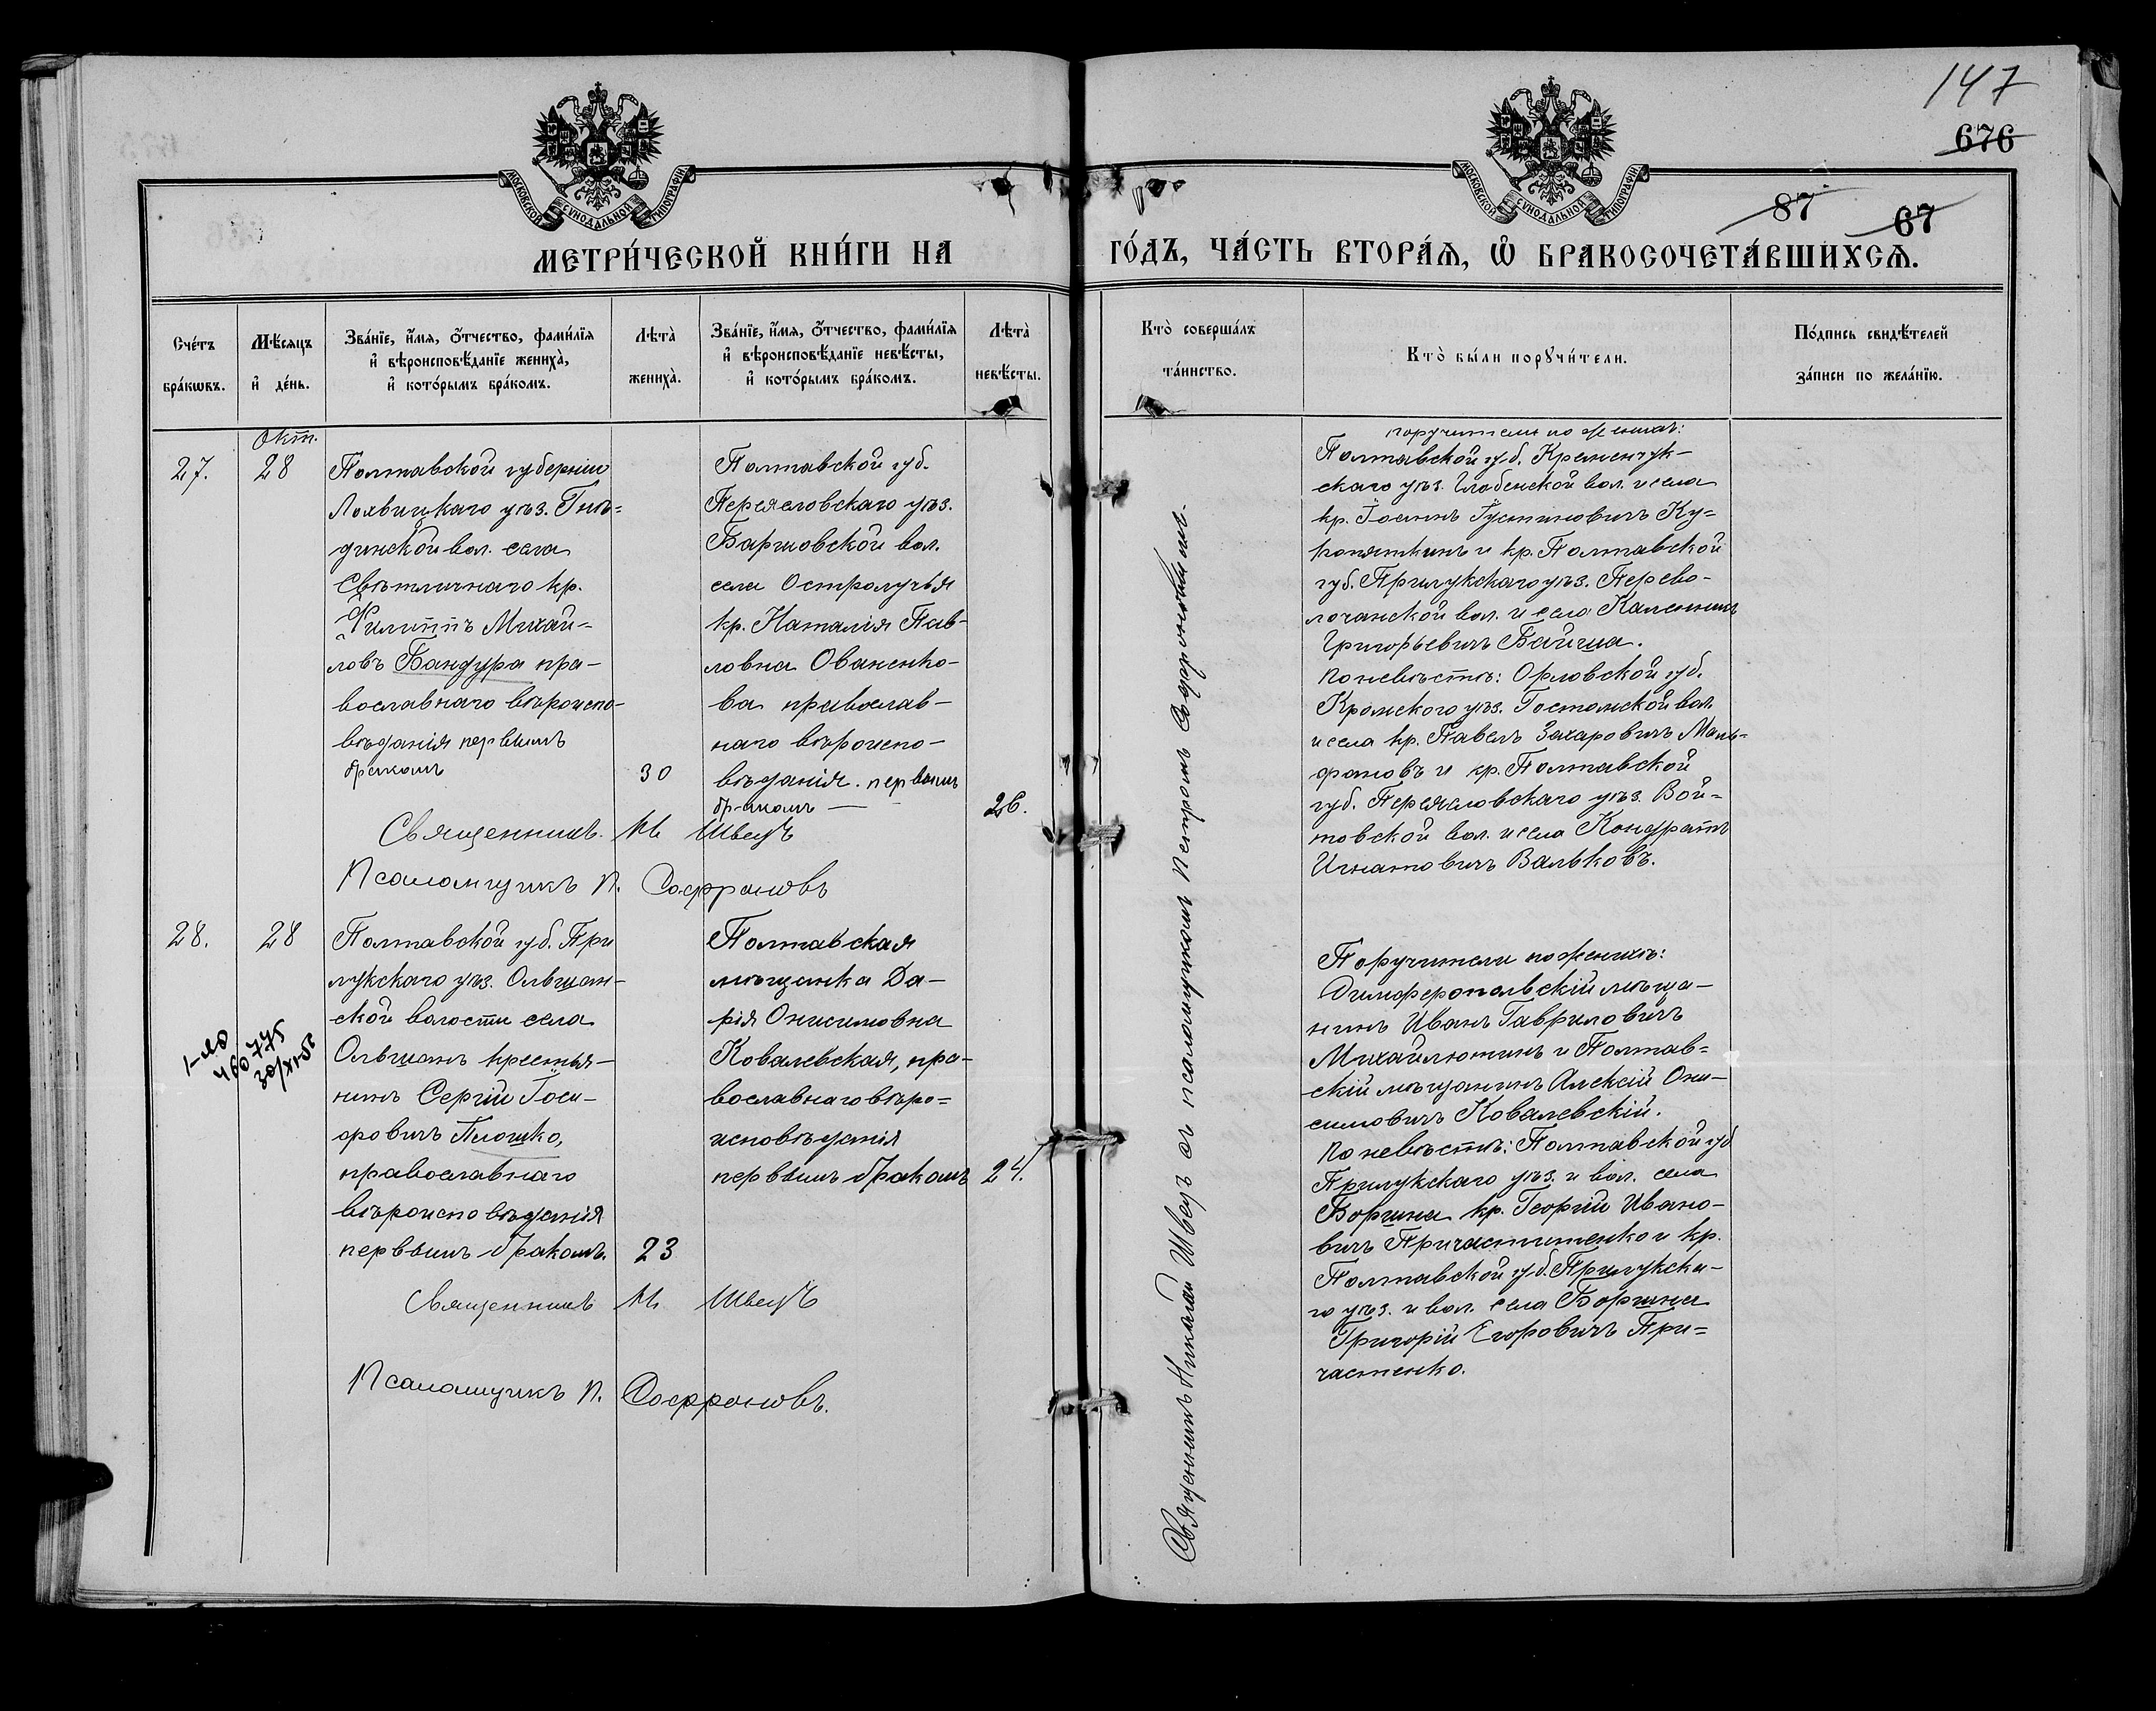 147
676
87
67
МОСКОВСКОЙ СУНОДАЛЬНОЙ ТИПОГРАФІИ
МОСКОВСКОЙ СУНОДАЛЬНОЙ ТИПОГРАФІИ
МЕТРИ́ЧЕСКОЙ КНИ́ГИ НА
ГО́ДЪ, ЧА́СТЬ ВТОРА́Ѧ, Ѽ БРАКОСОЧЕТА́ВШИХСѦ.
Сче́тъ
бра́кѡвъ.
Мѣ́сяцъ
и҆ де́нь.
Зва́нїе, и҆́мя, ѻ҆́тчество, фами́лїя
и҆ вѣроисповѣ́данїе жениха̀,
и҆ кото́рымъ бра́комъ.
Лѣта̀
жениха̀.
Зва́нїе, и҆́мя, ѻ҆́тчество, фами́лїя
и҆ вѣроисповѣ́данїе невѣ́сты,
и҆ кото́рымъ бра́комъ.
Лѣта̀
невѣ́сты.
Кто̀ соверша́лъ
та́инство.
Кто̀ бы́ли порꙋчи́тели.
По́дпись свидѣ́телей
за́писи по жела́нїю.
27.
Окт.
28
Полтавской губерніи
Лохвицкаго уѣз. Гнѣ=
динской вол. села
Свѣтличнаго кр.
Филиппъ Михай=
ловъ Бандура пра-
вославнаго вѣроиспо-
вѣданія первымъ
бракомъ
30
Полтавской губ.
Переяславскаго уѣз.
вол.
села Остролучья
кр. Наталія Пав-
ловна Ованенко-
ва православ-
наго вѣроиспо-
вѣданія. первымъ
бракомъ —
26.
Священникъ Н. Швецъ
Псаломщикъ П. Софроновъ
поручители по женихѣ:
Полтавской губ. Кременчуг-
скаго уѣз. Глобенской вол. и села
кр. Іоаннъ Іустиновичъ Ку=
ропяткинъ и кр. Полтавской
губ. Прилукскаго уѣз. Перево-
лочанской вол. и села
Григорьевичъ
По невѣстѣ: Орловской губ.
Кромскаго уѣз. Гостомской вол.
и села кр. Павелъ Захаровичъ
и кр. Полтавской
губ. Переяславскаго уѣз. Вой=
товской вол. и села Кондратъ
Игнатовичъ Вальковъ.
Священникъ Николай Швецъ съ псаломщикомъ Петромъ Софроновымъ.
28.
28
Полтавской губ. При
лукскаго уѣз. Ольшан-
ской волости села
Ольшанъ крестья-
нинъ Сергій Іоси-
фовичъ Плошко,
православнаго
вѣроисповѣданія
первымъ бракомъ.
23
Полтавская
мѣщанка Да-
рія Онисимовна
Ковалевская, пра-
вославнаго вѣро=
исповѣданія
первымъ бракомъ
24.
Священникъ Н. Швецъ
Псаломщикъ П. Софроновъ.
Поручители по женихѣ:
Симферопольскій мѣща-
нинъ Иванъ Гавриловичъ
Михайлюшинъ и Полтав=
скій мѣщанинъ Алексій Они-
симовичъ Ковалевскій.
По невѣстѣ: Полтавской губ
Прилукскаго уѣз. и вол. села
Боршна кр. Георгій Ивано-
вичъ Причастишенко и кр.
Полтавской губ. Прилукска-
го уѣз. и вол. села Боршна
Григорій Егоровичъ При=
частенко.